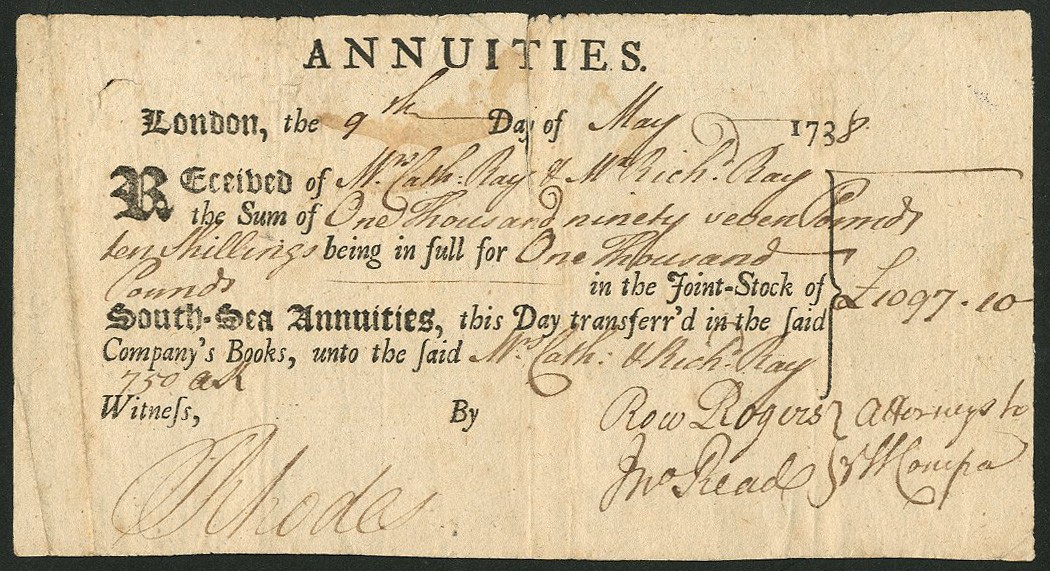 ANNUITIES.
London, the 9th Day of May 1738
REceived of Mrs Cath: Ray & Mr Richd. Ray
the Sum of One Thousand ninety seven Pounds
ten Shillings being in full for One Thousand
Pounds in the Joint-Stock of £1097.10
South-Sea Annuities, this Day transferr'd in the ſaid
Company's Books, unto the ſaid Mrs Cath: & Richd. Ray
750
Witneſs, By Row Rogers } Attorneys to
Jno Read } Compa
Rhodes